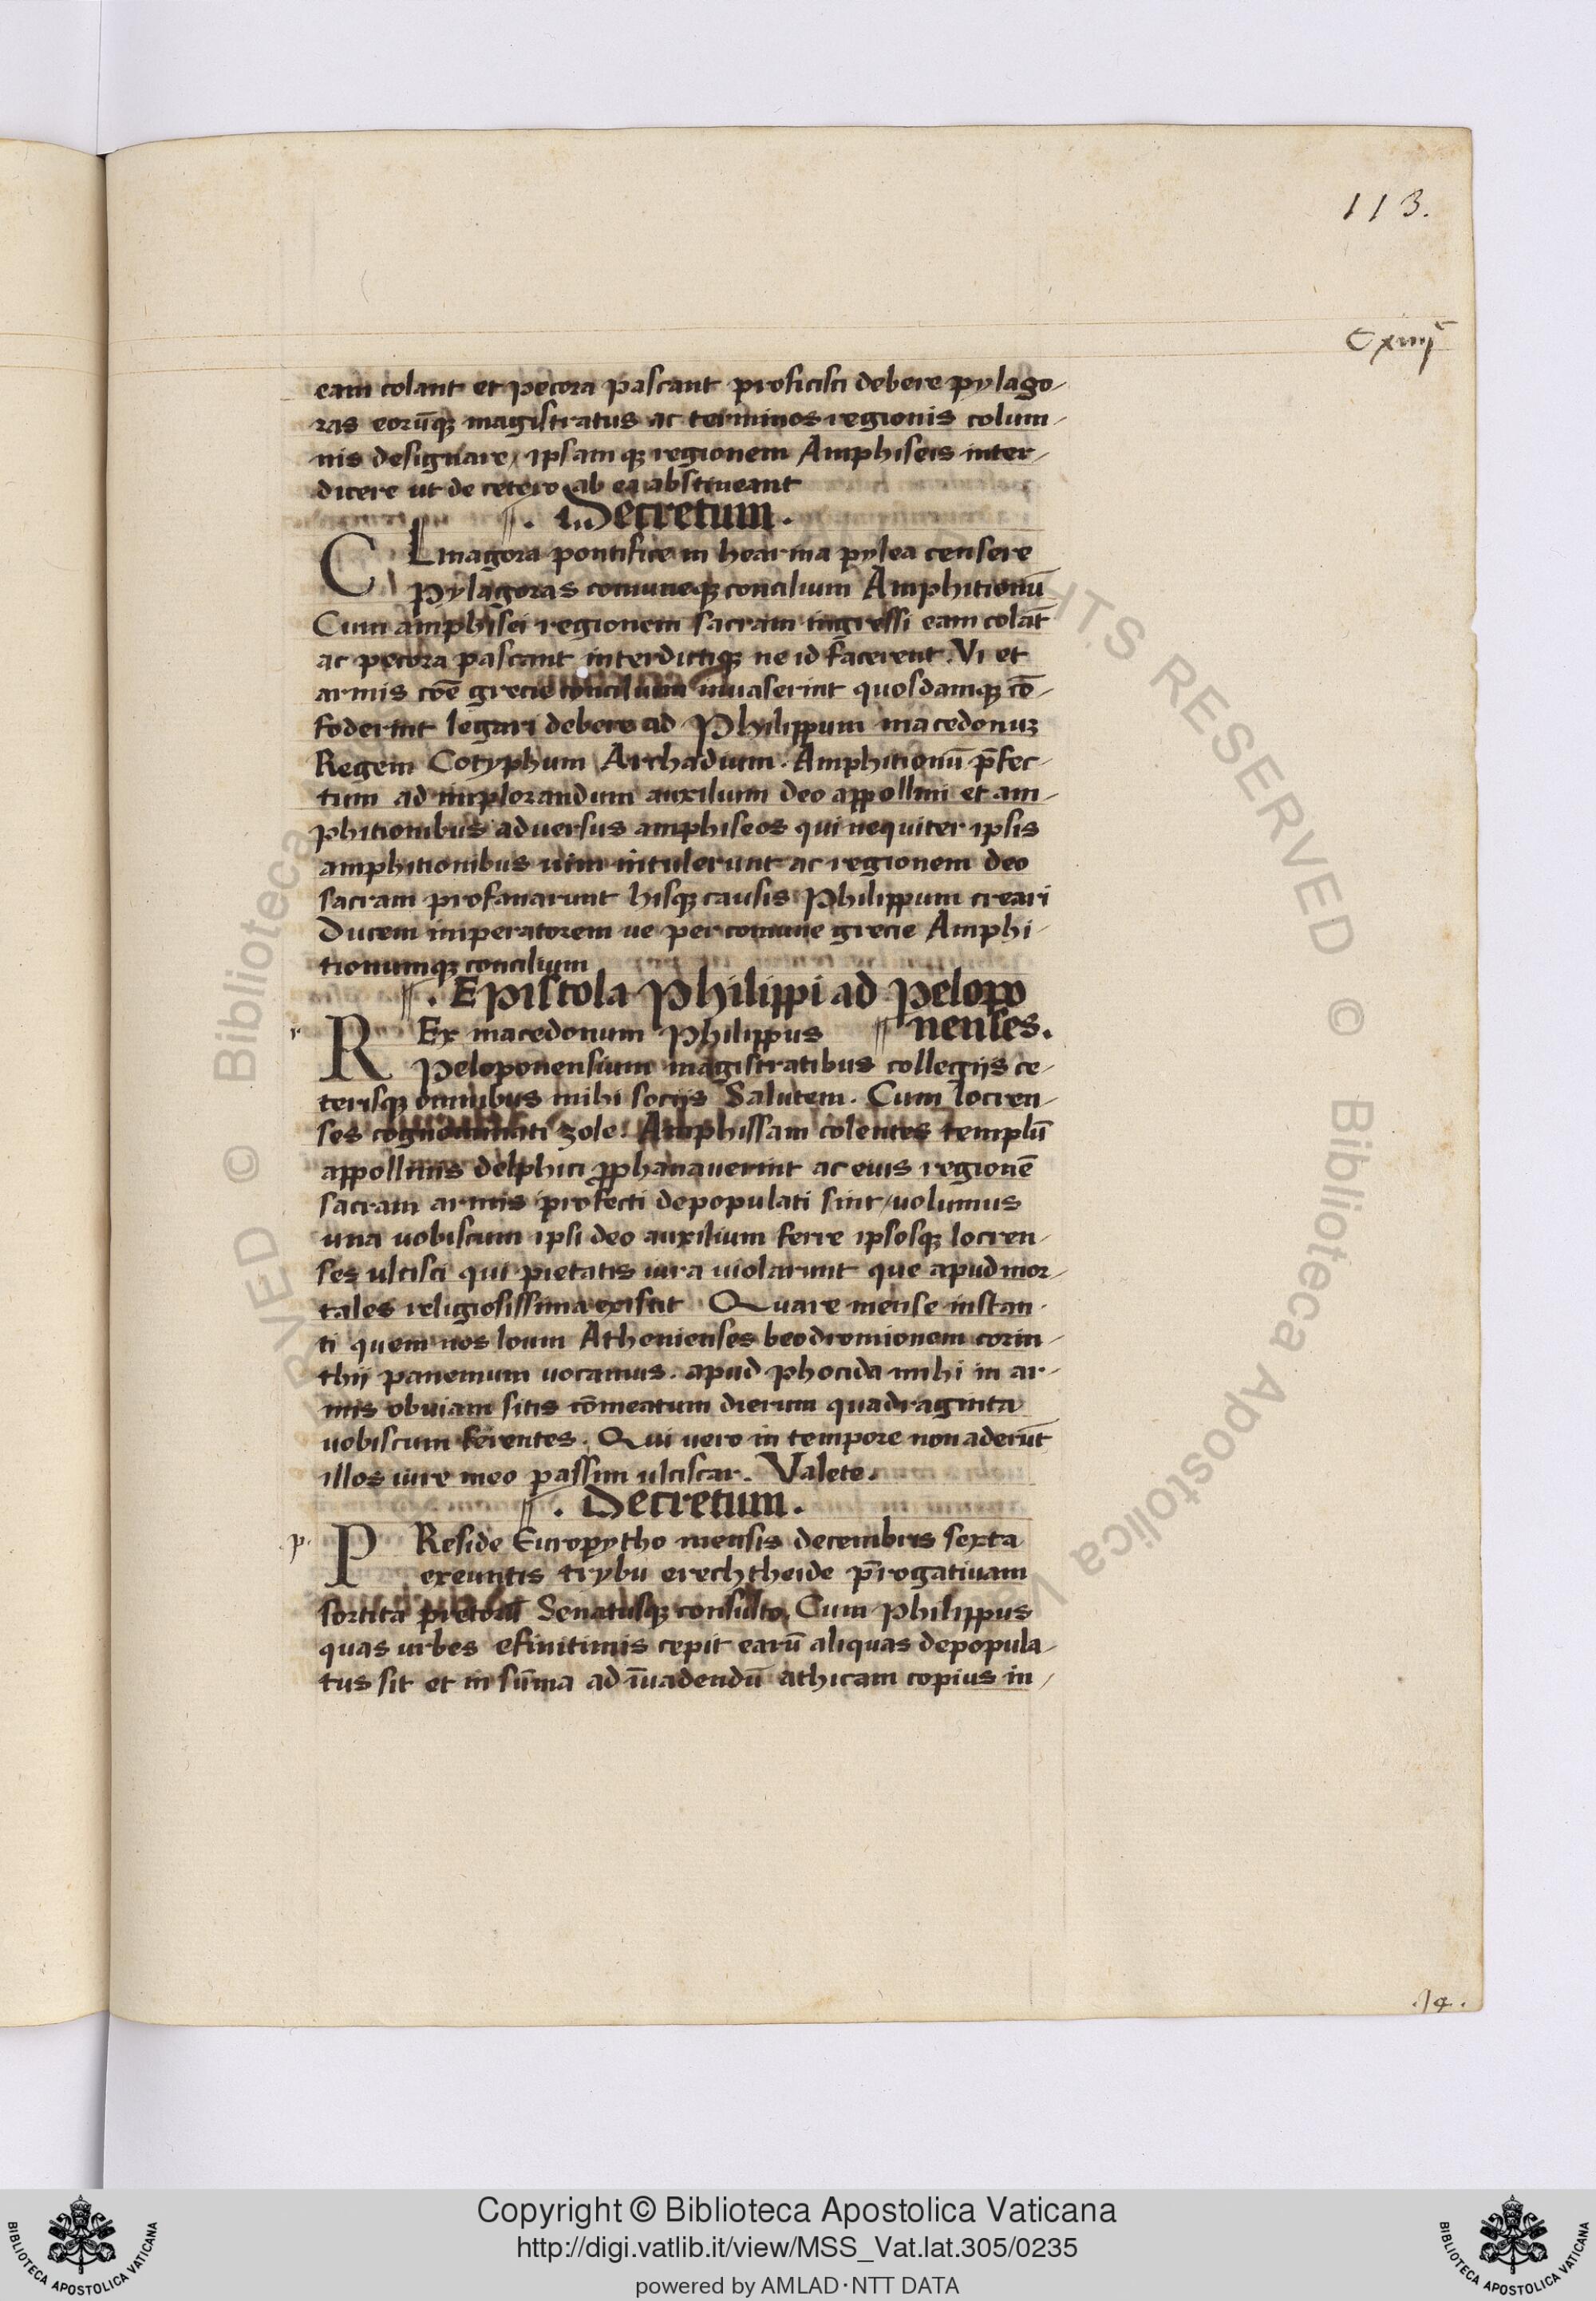 113.
Cxiiij
eam colant et pecora pascant proficisci debere pylago-
ras eorūqꝫ magistratus ac terminos regionis colum-
nis designare/ ipsamqꝫ regionem Amphiseis inter-
dicere ut de cetero ab ea abstineant
Decretum.
CLinagora pontifice in hearina pylea censere
pylagoras comuneqꝫ concilium Amphitionū
Cum amphisei regionem sacram ingressi eam colāt
ac pecora pascant interdictiqꝫ ne id facerent. Vi et
armis cōe grecie concilium inuaserint quosdamqꝫ cō-
foderint legari debere ad Philippum macedonuꝫ
Regem Cotyphum Archadum. Amphitionū p̄fec-
tum ad implorandum auxilium deo appollini et am-
phitionibus aduersus amphiseos qui nequiter ipsis
amphitionibus uim intulerunt ac regionem deo
sacram profanarunt hisqꝫ causis Philippum creari
Ducem imperatorem ue per comune grecie Amphi-
tionumqꝫ concilium
Epistola Philippi ad pelopo
nenses.
r
REx macedonum Philippus
peloponensium magistratibus collegijs ce-
terisqꝫ omnibus mihi socijs Salutem. Cum locren-
ses cognominati zole. Amphissam colentes templū
appollinis delphici ꝓphanauerint ac eius regionē
sacram armis profecti depopulati sint/ uolumus
una uobiscum ipsi deo auxilium ferre ipsosqꝫ locren-
ses ulcisci qui pietatis iura uiolarunt que apud mor-
tales religiosissima existit Quare mense instan-
ti quem nos loum Athenienses beodromionem corin-
thij panemum uocamus. apud phocida mihi in ar-
mis obuiam sitis cōmeatum dierum quadraginta
uobiscum ferentes. Qui uero in tempore non aderūt
illos iure meo passim ulciscar. Valete.
Decretum.
p.
PReside Europytho mensis decembris sexta
exeuntis trybu erechtheide p̄rogatiuam
sortita Senatusqꝫ consulto. Cum philippus
quas urbes efinitimis cepit earū aliquas depopula-
tus sit et in sūma ad īuadendū athicam copius in-
Copyright © Biblioteca Apostolica Vaticana
http://digi.vatlib.it/view/MSS_Vat.lat.305/0235
powered by AMLAD·NTT DATA